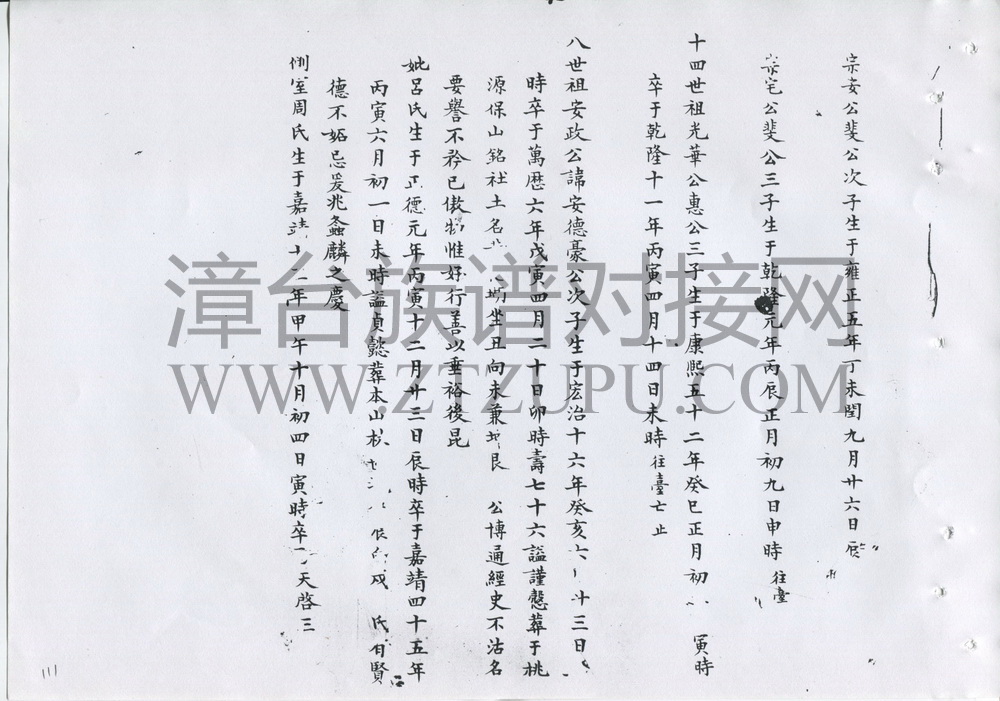 宗安公斐公次子生于雍正五年丁未閏九月廿六日辰
宗宅公斐公三子生于乾隆元年丙辰正月初九日申時往臺
十四世祖光華公惠公三子生于康熙五十二年癸巳正月初 寅時
卒于乾隆十一年丙寅四月十四日未時往臺亡止
八世祖安政公諱安德豪公次子生于宏治十六年癸亥六 十三日
時卒于萬歷六年戊寅四月二十日卯時壽七十六謚謹慤葬于桃
源保山銘社土名 坐丑向未兼 艮 公博通經史不沽名
要譽不矜已傲物惟好行善以垂裕後昆
妣呂氏生于正德元年丙寅十二月廿三日辰時卒于嘉靖四十五年
丙寅六月初一日未時謚貞懿葬本山 氏有賢
德不妬忌爰兆螽麟之慶
側室周氏生于嘉靖十 年甲午十月初四日寅時卒 天啓三
111
漳台族谱对接网
WWW.ZTZUPU.COM